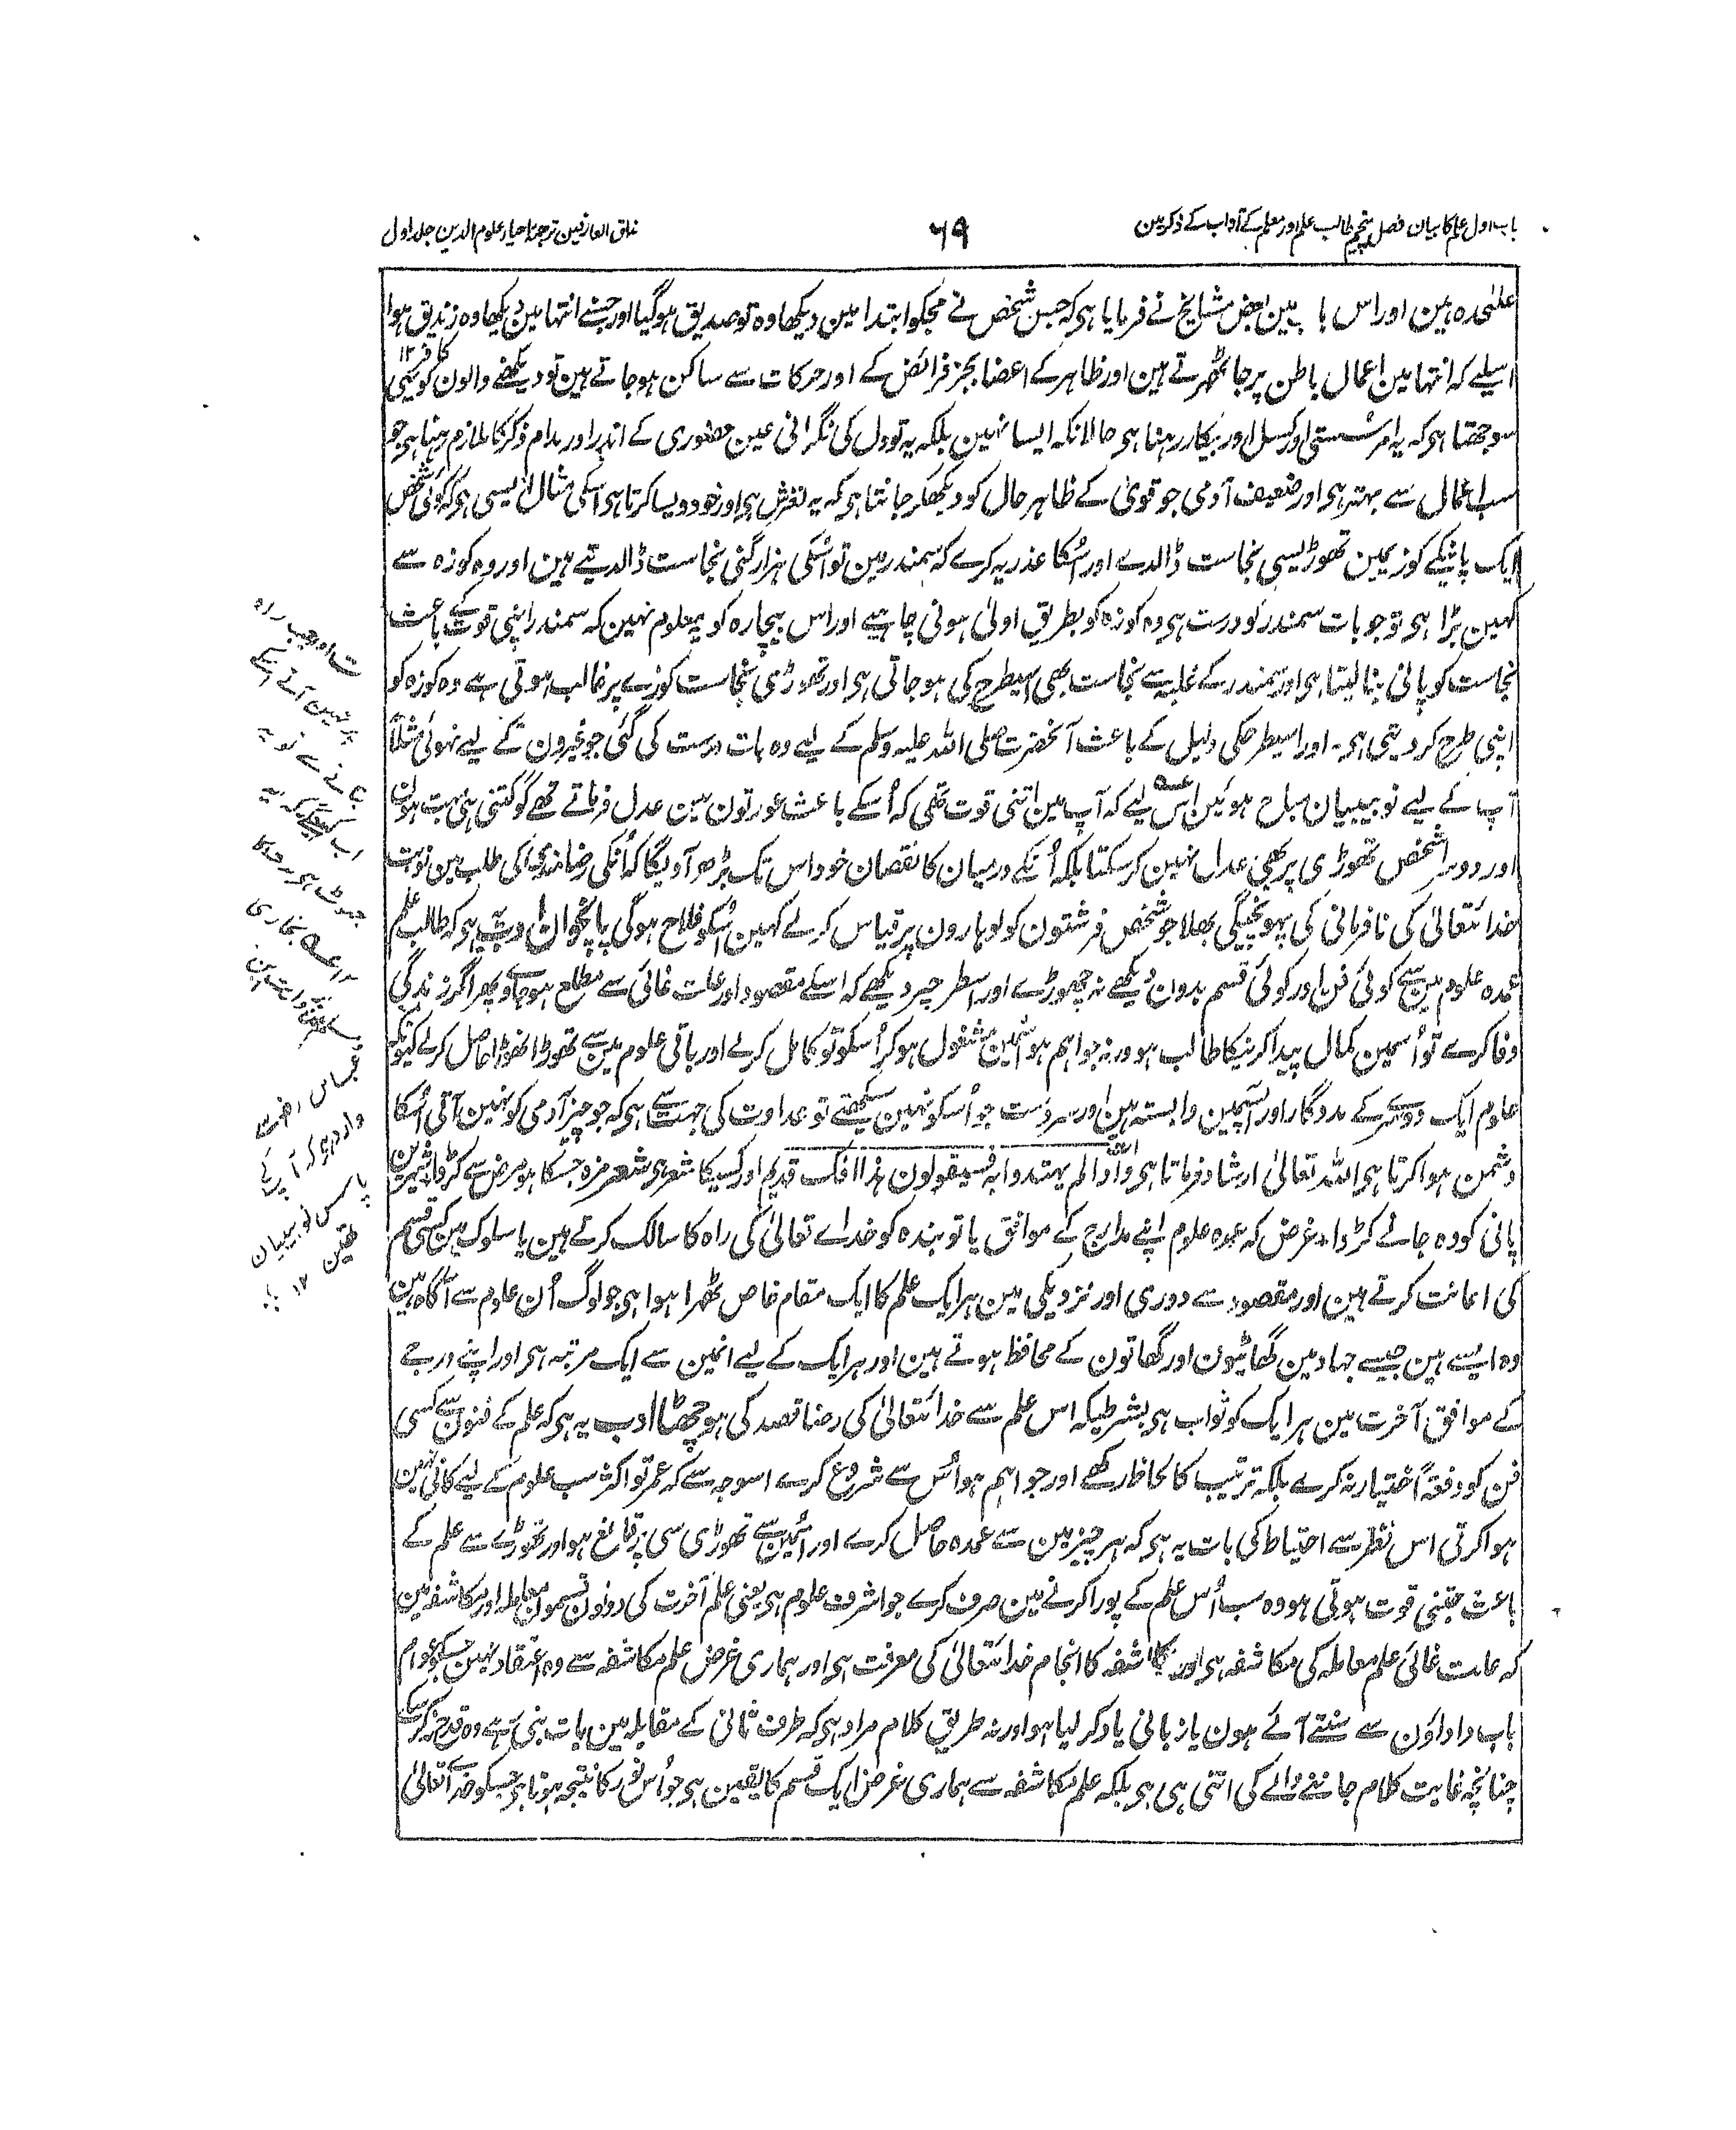 باب اول علم کا بیان فصل پنجم طالب علم اور معلم کے آداب کے ذکر مین
۶۹
مذاق العارفین ترجمۂ احیاء علوم الدین جلد اول
علٰحدہ ہین اور اس باب مین بعض مشایخ نے فرمایا ہی کہ جس شخص نے مجکو ابتدا مین دیکھا وہ تو صدیق ہوگیا اور جسنے انتہا مین دیکھا وہ زندیق ہوا
کافر ۱۲
اسلیے کہ انتہا مین اعمال باطن پر جا ٹھہرتے ہین اور ظاہر کے اعضا بجز فرائض کے اور حرکات سے ساکن ہو جاتے ہین تو دیکھنے والون کو یہی
سوجھتا ہی کہ یہ امر سستی اور کسل اور بیکار رہنا ہی حالانکہ ایسا نہین بلکہ یہ تو دل کی نگرانی عین حضوری کے اندر اور مدام ذکر کا ملازم رہنا ہی جو
سب اعمال سے بہتر ہی اور ضعیف آدمی جو قوی کے ظاہر حال کو دیکھکر جانتا ہی کہ یہ لغزش ہی اور خود ویسا کرتا ہی اسکی مثال ایسی ہی کہ کوئی شخص
ایک پانیکے کوزیمین تھوڑیسی نجاست ڈالدے اور اسکا عذر یہ کرے کہ سمندر مین تو اسکی ہزار گنی نجاست ڈالدیتے ہین اور وہ کوزہ سے
کہین بڑا ہی تو جو بات سمندر کو درست ہی وہ کوزہ کو بطریق اولی ہونی چاہیے اور اس بیچارہ کو یہ معلوم نہین کہ سمندر اپنی قوت کے باعث
نجاست کو پانی بنا لیتا ہی اور سمندر کے غلبہ سے نجاست بھی اسیطرح کی ہو جاتی ہی اور تھوڑی نجاست کوزے پر غالب ہوتی ہے وہ کوزہ کو
اپنی طرح کر دیتی ہی۔ اور اسیطرحکی دلیل کے باعث آنحضرت صلی اللہ علیہ وسلم کے لیے وہ بات درست کی گئی جو غیرون کے لیے نہوئی مثلاً
آپ کے لیے نو بیبیان مباح ہوئین اس لیے کہ آپ مین اتنی قوت تھی کہ اُسکے باعث عورتون مین عدل فرماتے تھے گو کتنی ہی بہت ہون
اور دوسرا شخص تھوڑی پر بھی عدل نہین کر سکتا بلکہ اُنکے درمیان کا نقصان خود اس تک بڑھ آویگا کہ اُنکی رضامندی کی طلب مین نوبت
خدا تعالیٰ کی نافرمانی کی پہونچیگی بھلا جو شخص فرشتون کو لوہارون پر قیاس کرلے کہین اسکو فلاح ہوگی پانچوان ادب یہ ہی کہ طالب علم
عمدہ علوم مین سے کوئی فن اور کوئی قسم بدون دیکھے نہ چھوڑے اور اسطرح پر دیکھے کہ اسکے مقصود اور علت غائی سے مطلع ہو جاوے پھر اگر زندگی
وفا کرے تو اُسمین کمال پیدا کرنیکا طالب ہو ورنہ جو اہم ہو اسمین مشغول ہو کر اُسکو تو کامل کرلے اور باقی علوم مین سے تھوڑا تھوڑا حاصل کرلے کیونکہ
علوم ایک دوسرے کے مددگار اور آپسمین وابستہ ہین اور سردست جو اُسکو نہین سیکھتے تو عداوت کی جہت سے ہی کہ جو چیز آدمی کو نہین آتی اُسکا
دشمن ہوا کرتا ہی اللہ تعالیٰ ارشاد فرماتا ہی واذ الم یہتدوا بہ فسیقولون ہذا افک قدیم اور کسیکا شعر ہی شعر مزہ جسکا ہو مرض سے کڑوا شیرین
پانی کو وہ جانے کڑوا۔ غرض کہ عمدہ علوم اپنے مدارج کے موافق یا تو بندہ کو خداے تعالیٰ کی راہ کا سالک کرتے ہین یا سلوک مین کسی قسم
کی اعانت کرتے ہین اور مقصود سے دوری اور نزدیکی مین ہر ایک علم کا ایک مقام خاص ٹھہرا ہوا ہی جو لوگ اُن علوم سے آگاہ ہین
وہ ایسے ہین جیسے جہاد مین گھاٹیون اور گھاتون کے محافظ ہوتے ہین اور ہر ایک کے لیے انمین سے ایک مرتبہ ہی اور اپنے درجے
کے موافق آخرت مین ہر ایک کو ثواب ہی بشرطیکہ اس علم سے خدا تعالیٰ کی رضا قصد کی ہو چھٹا ادب یہ ہی کہ علم کے فنون سے کسی
فن کو دفعۃً اختیار نہ کرے بلکہ ترتیب کا لحاظ رکھے اور جو اہم ہو اُس سے شروع کرے اسوجہ سے کہ عمر تو اکثر سب علوم کے لیے کافی نہین
ہوا کرتی اس نظر سے احتیاط کی بات یہ ہی کہ ہر چیز مین سے عمدہ حاصل کرے اور اسمین سے تھوڑی سی پر قانع ہو اور تھوڑے سے علم کے
باعث جتنی قوت ہوتی ہو وہ سب اُس علم کے پورا کرنے مین صرف کرے جو اشرف علوم ہی یعنی علم آخرت کی دونون قسمون معاملہ اور مکاشفہ مین
کہ علت غائی علم معاملہ کی مکاشفہ ہی اور مکاشفہ کا انجام خدا تعالیٰ کی معرفت ہی اور ہماری غرض علم مکاشفہ سے وہ اعتقاد نہین جسکو عوام
باپ داداون سے سنتے آئے ہون یا زبانی یاد کر لیا ہو اور نہ طریق کلام مراد ہی کہ طرف ثانی کے مقابلہ مین بات بنی رہے وہ قدح نہ کر سکے
چنانچہ غایت کلام جاننے والے کی اتنی ہی ہی بلکہ علم مکاشفہ سے ہماری غرض ایک قسم کا یقین ہی جو اُس نور کا نتیجہ ہوتا ہی جسکو خدا تعالیٰ
ت اور جب راہ
پر نہین آتے اسکے
بتانے سے تو یہ
اب کہینگے کہ یہ
جھوٹ ہی مدت کا
بخاری
عباس رضی
وارد ہی کہ آپ کے
پاس نو بیبیان
تھین ۱۲